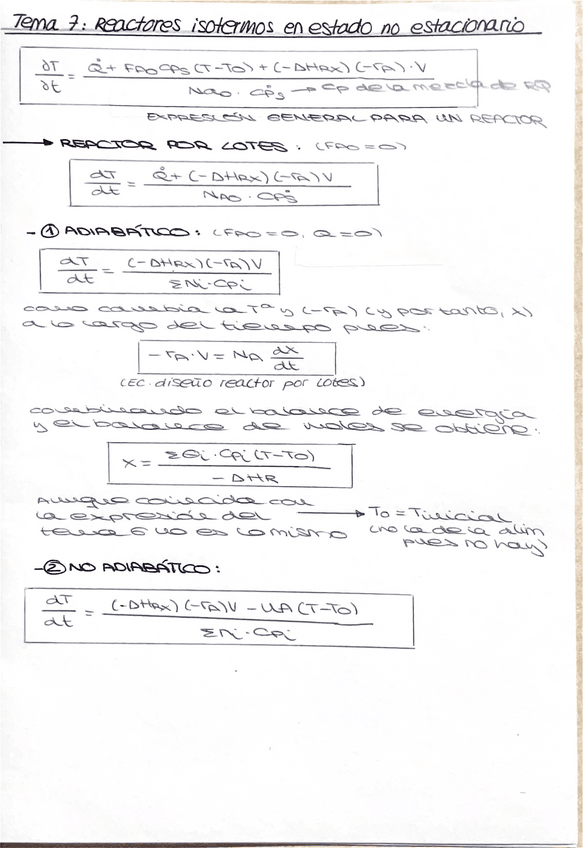 Tema 7: Reactores isotermos en estado no estacionario
∂T/∂t = (Q̇ + FA0 CPS (T-T0) + (-ΔHRX)(-rA)·V) / (NA0 · CPS) → CP de la mezcla de RQ
EXPRESIÓN GENERAL PARA UN REACTOR
→ REACTOR POR LOTES: (FA0=0)
dT/dt = (Q̇ + (-ΔHRX)(-rA)V) / (NA0 · CPS)
- ① ADIABÁTICO: (FA0=0, Q=0)
dT/dt = (-ΔHRX)(-rA)V / ΣNi·CPi
como cambia la Tª y (-rA) (y por tanto, x)
a lo largo del tiempo pues:
-rA·V = NA dx/dt
(EC. diseño reactor por lotes)
combinando el balance de energía
y el balance de moles se obtiene:
X = ΣΘi·CPi (T-T0) / -ΔHR
Aunque coincida con
la expresión del → T0 = Tinicial
tema 6 no es lo mismo (no la de la alim
pues no hay)
- ② NO ADIABÁTICO:
dT/dt = ((-ΔHRX)(-rA)V - UA(T-T0)) / Σni·CPi